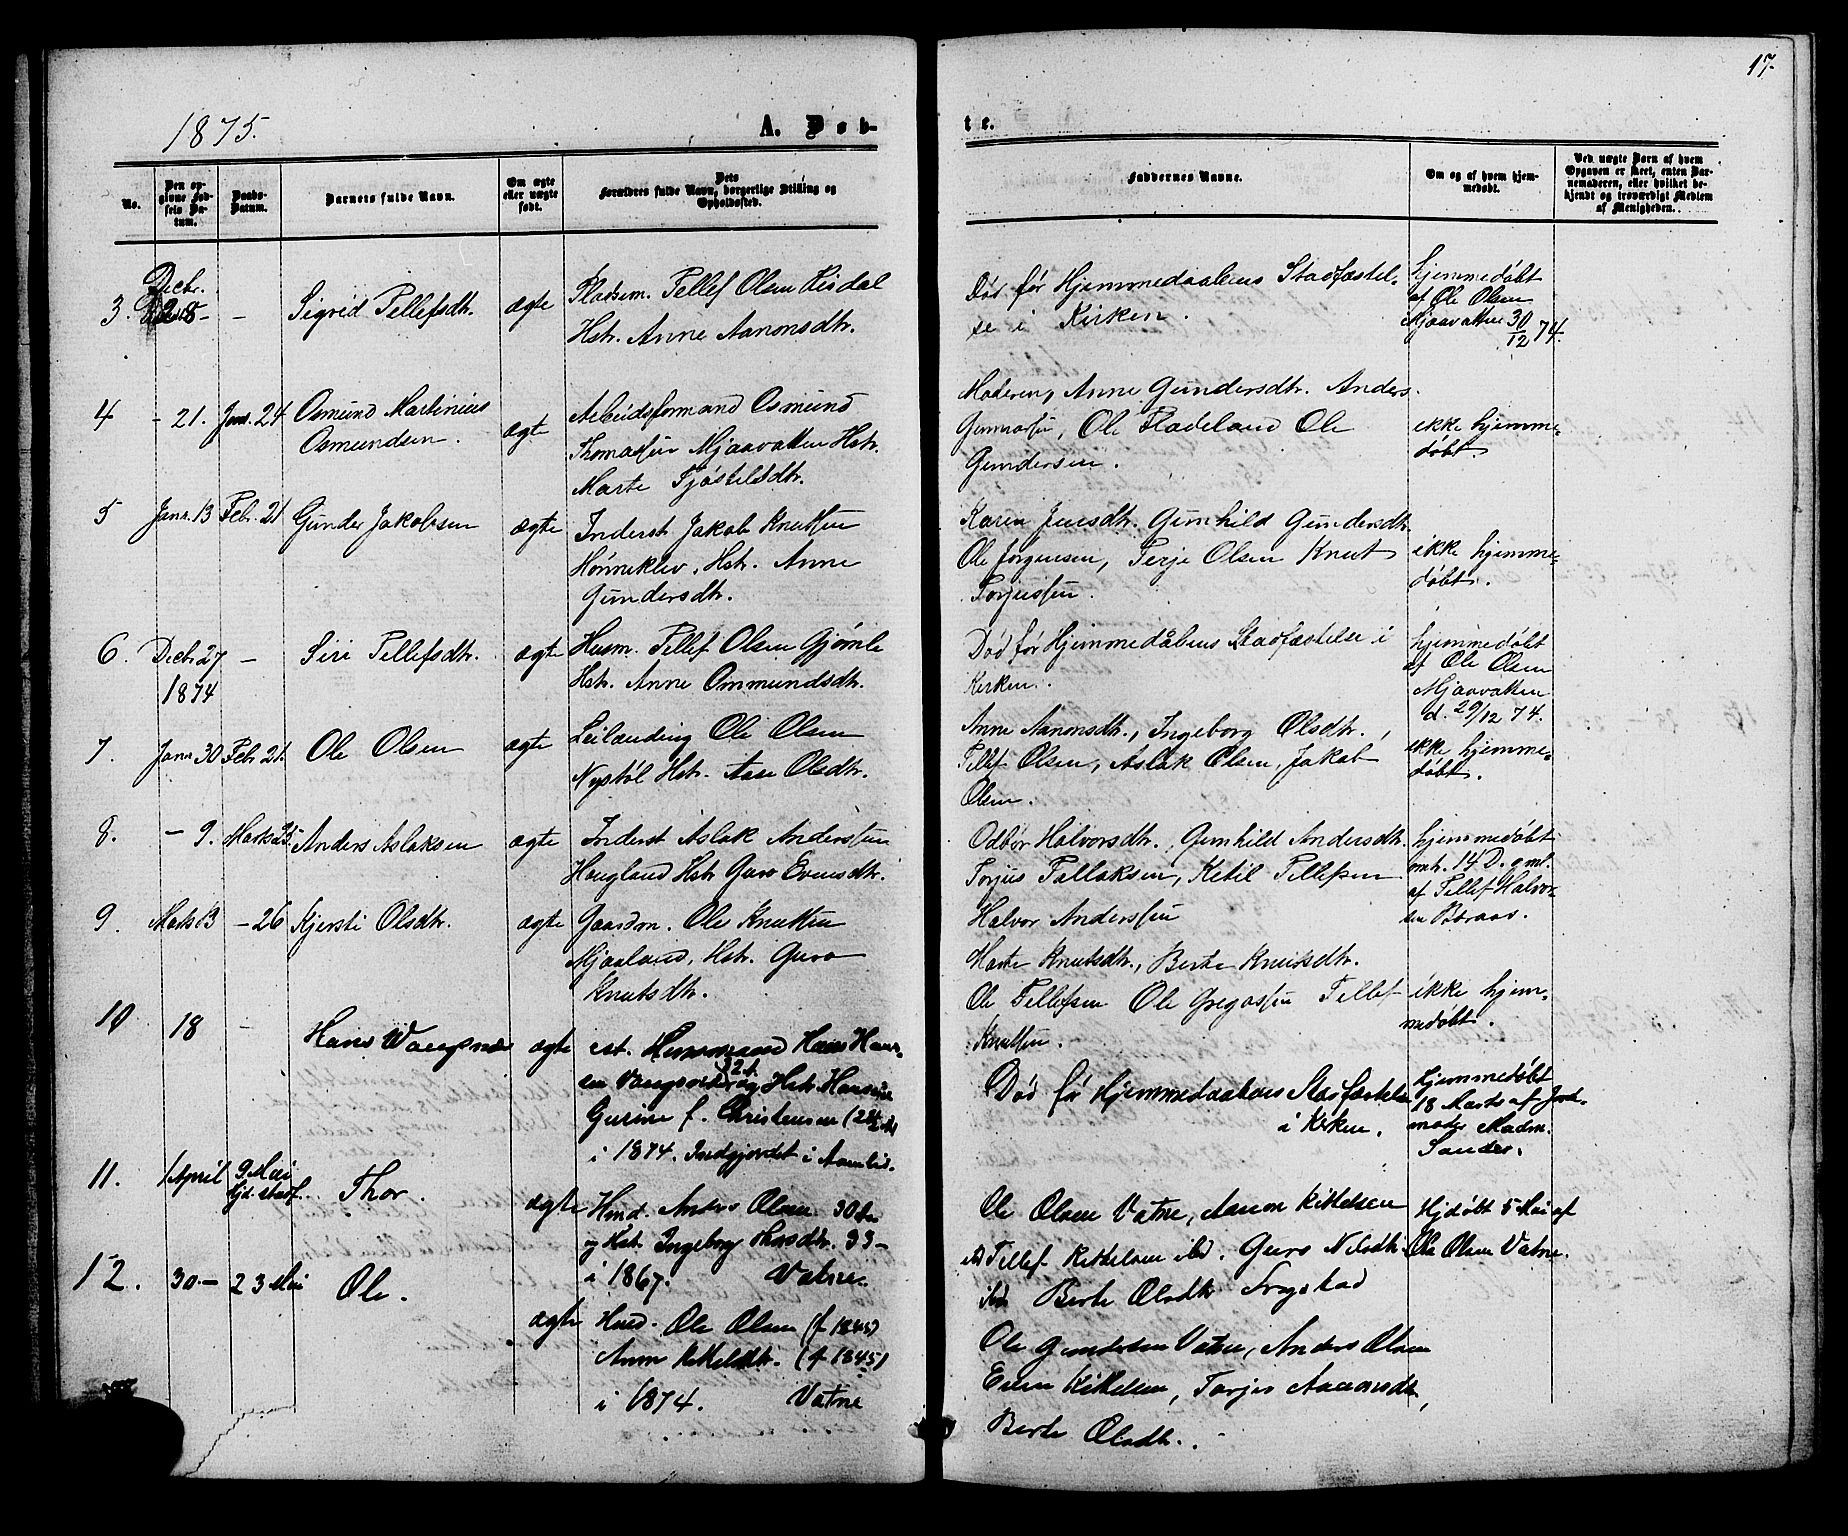 17.
1875.
A. Døb-
te.
No.
Den op-
givne Fød-
sels Da-
tum.
Daabs-
Datum.
Barnets fulde Navn.
Om ægte
eller uægte
født.
Dets
Forældres fulde Navn, borgerlige Stilling og
Opholdssted.
Faddernes Navne.
Om og af hvem hjem-
medøbt.
Ved uægte Børn af hvem
Opgaven er skeet, enten Bar-
nemoderen, eller hvilket be-
kjendt og troværdigt Medlem
af Menigheden.
3. Decbr. 28 - - Sigrid Tellefsdtr. ægte
Pladsm. Tellef Olsen Risdal
Hstr. Anne Aanonsdtr.
Død før Hjemmedaabens Stadfæstel-
se i Kirken.
hjemmedøbt
af Ole Olsen
Mjaavatten 30/12 74.
4 - 21. Jan. 24 Osmund Martinius
Osmundsen. ægte
Arbeidsformand Osmund
Thomassen Mjaavatten Hstr.
Marte Tjøstelsdtr.
Moderen, Anne Gundersdtr. Anders
Gunnarsen, Ole Fladeland Ole
Gundersen.
ikke hjemme-
døbt.
5 Janr. 13 Febr. 21 Gunder Jakobsen ægte
Inderst Jakob Knutsen
Hønneklev, Hstr. Anne
Gundersdtr.
Karen Jensdtr. Gunhild Gundersdtr.
Ole Jørgensen, Terje Olsen Knut
Torjussen.
ikke hjemme-
døbt.
6. Decbr 27
1874 - Siri Tellefsdtr. ægte
Husm. Tellef Olsen Gjømle
Hstr. Anne Ommundsdtr.
Død før Hjemmedåbens Stadfæstelse i
Kirken.
hjemmedøbt
af Ole Olsen
Mjaavatten
d. 29/12 74.
7. Janr 30 Febr 21. Ole Olsen ægte
Leilænding Ole Olsen
Nystøl Hstr. Aase Olsdtr.
Anne Aanonsdtr., Ingeborg Olsdtr.,
Tellef Olsen, Aslak Olsen, Jakob
Olsen.
ikke hjemme-
døbt.
8. - 9. Marts 25. Anders Aslaksen ægte
Inderst Aslak Anderssen
Hougland Hstr Guro Evensdtr.
Odbør Halvorsdtr., Gunhild Andersdtr.
Torjus Tallaksen, Ketil Tellefsen
Halvor Anderssen
hjemmedøbt
omtr. 14 D. gml.
af Tellef Halvor-
sen Baraas.
9. Marts 13 - 26 Kjersti Olsdtr. ægte
Gaardm. Ole Knutsen
Mjaaland, Hstr. Guro
Knutsdtr.
Marte Knutsdtr., Berte Knutsdtr.
Ole Tellefsen Ole Gregassen Tellef
Knutsen.
ikke hjem-
medøbt.
10 18 - Hans Vangsnes ægte
Husmand Hans Han-
sen 32 1/2 og Hstr. Hansine
Gurine f. Christensen (24 1/2
i 1874. Indgjordet i Aamlid.
Død før Hjemmedaabens Stadfæstelse
i Kirken.
Hjemmedøbt
18 Marts af Jord-
moder Madm.
Sander.
11. 1 April 9 Mai
hjd. stadf. Thor. ægte
Husd. Anders Olsen 30 Aar
og Hstr. Ingeborg Thorsdtr. 33 -
i 1867. Vatne.
Ole Olsen Vatne, Aanon Kittelsen
Tellef Kittelsen ibd. Guro Nilsdtr.
ibd Berte Olsdtr. Frogstad
Hjdøbt 5 Mai af
Ole Olsen Vatne.
12. 30 - 23 Mai Ole. ægte
Husd. Ole Olsen (f 1845)
Anne Kittelsdtr. (f 1845)
i 1874. Vatne
Ole Gundersen Vatne, Anders Olsen
Even Kittelsen, Torjer Aanonsdtr,
Berte Olsdtr.